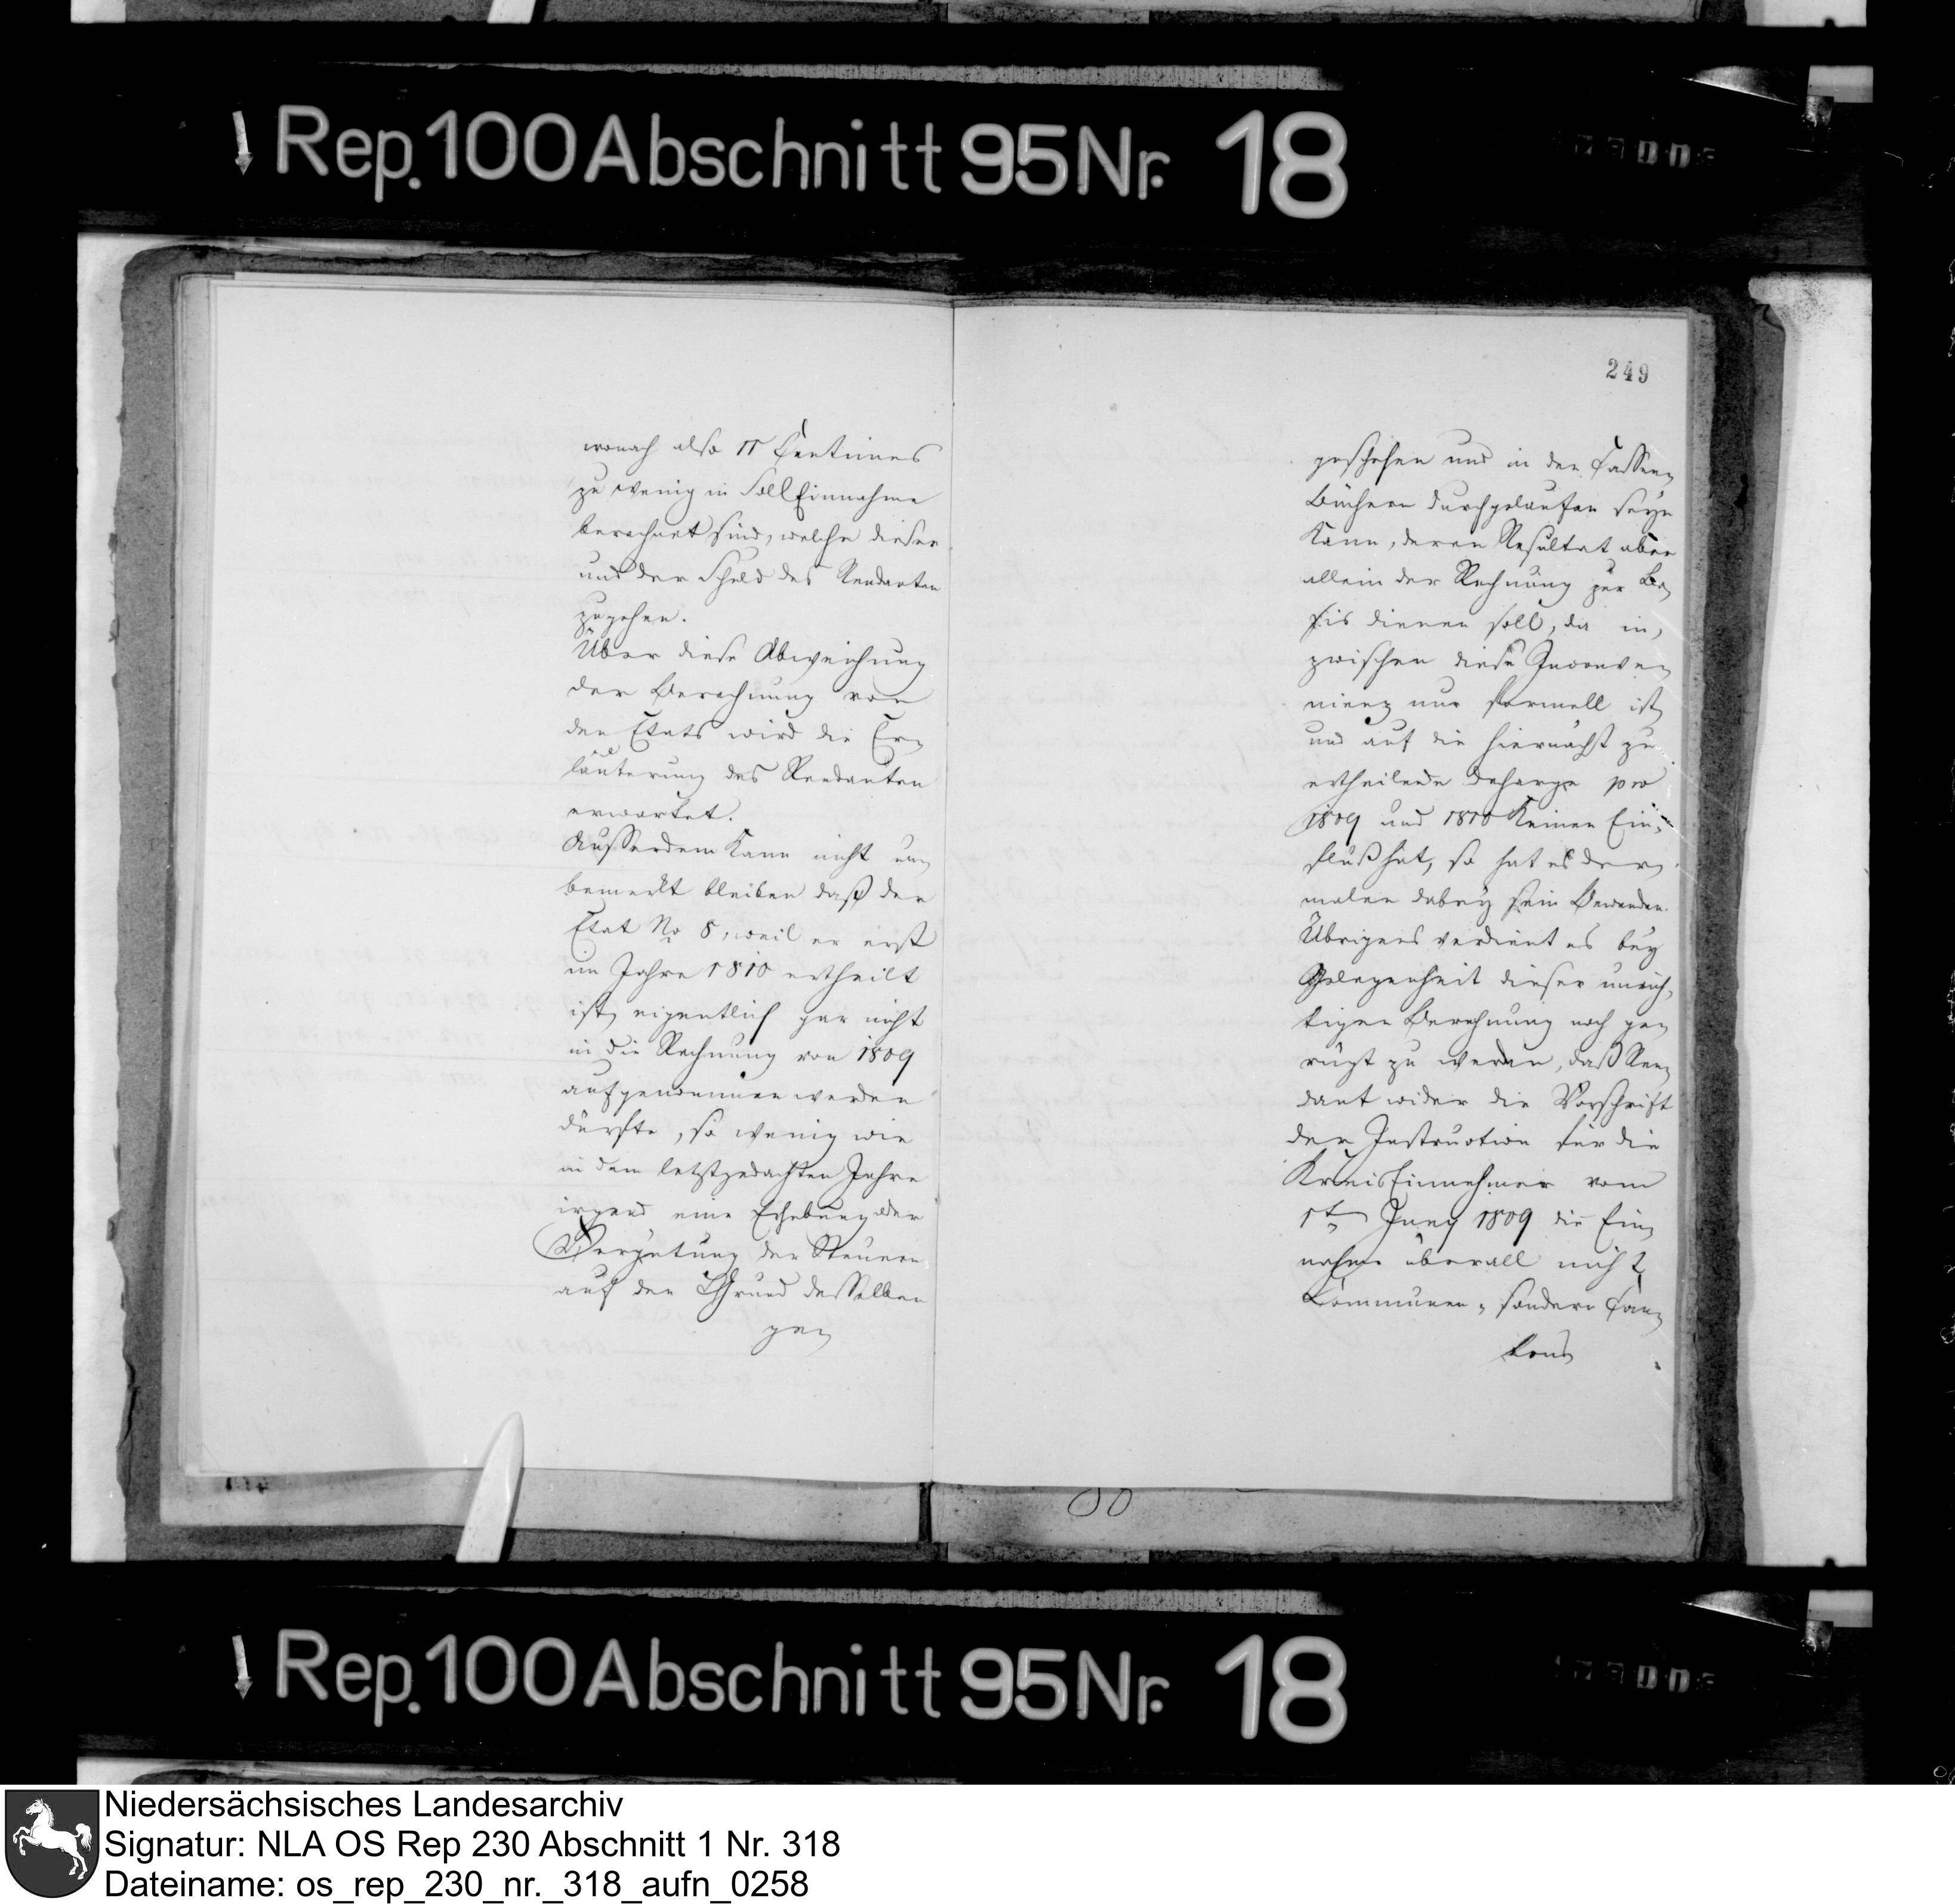 Rep. 100 Abschnitt 95 Nr. 18
wonach also 11 Centimes
zu wenig in Soll Einnahme
berechnet sind, welche dieser
und der Schuld des Rendanten
zugehen.
Über diese Abweichung
der Berechnung von
den Etats wird die Er-
läuterung des Rendanten
erwartet.
Ausserdem kann nicht un-
bemerkt bleiben daß der
Etat No 8, weil er erst
im Jahre 1810 ertheilt
ist, eigentlich gar nicht
in die Rechnung von 1809
aufgenommen werden
dürfte, so wenig wie
in dem letztgedachten Jahre
irgend eine Erhebung oder
Vergütung der Steuern
auf den Grund desselben
ge-
249
geschehen und in den Cassen-
Büchern durchgelaufen seyn
kann, deren Resultat aber
allein der Rechnung zur Ba-
sis dienen soll, da in-
zwischen diese Inconve-
nienz nur formell ist,
und auf die hiernächst zu
ertheilende decharge pro
1809 und 1810 keinen Ein-
fluß hat, so hat es der-
malen dabey sein Bewenden.
Übrigens verdient es bey
Gelegenheit dieser unrich-
tigen Berechnung noch ge-
rügt zu werden, daß Ren-
dant wider die Vorschrift
der Instruction für die
Kreis Einnehmer vom
1t Juny 1809 die Ein-
nahme überall nicht
Communen- sondern Can-
tons
Rep. 100 Abschnitt 95 Nr. 18
Niedersächsisches Landesarchiv
Signatur: NLA OS Rep 230 Abschnitt 1 Nr. 318
Dateiname: os_rep_230_nr._318_aufn_0258